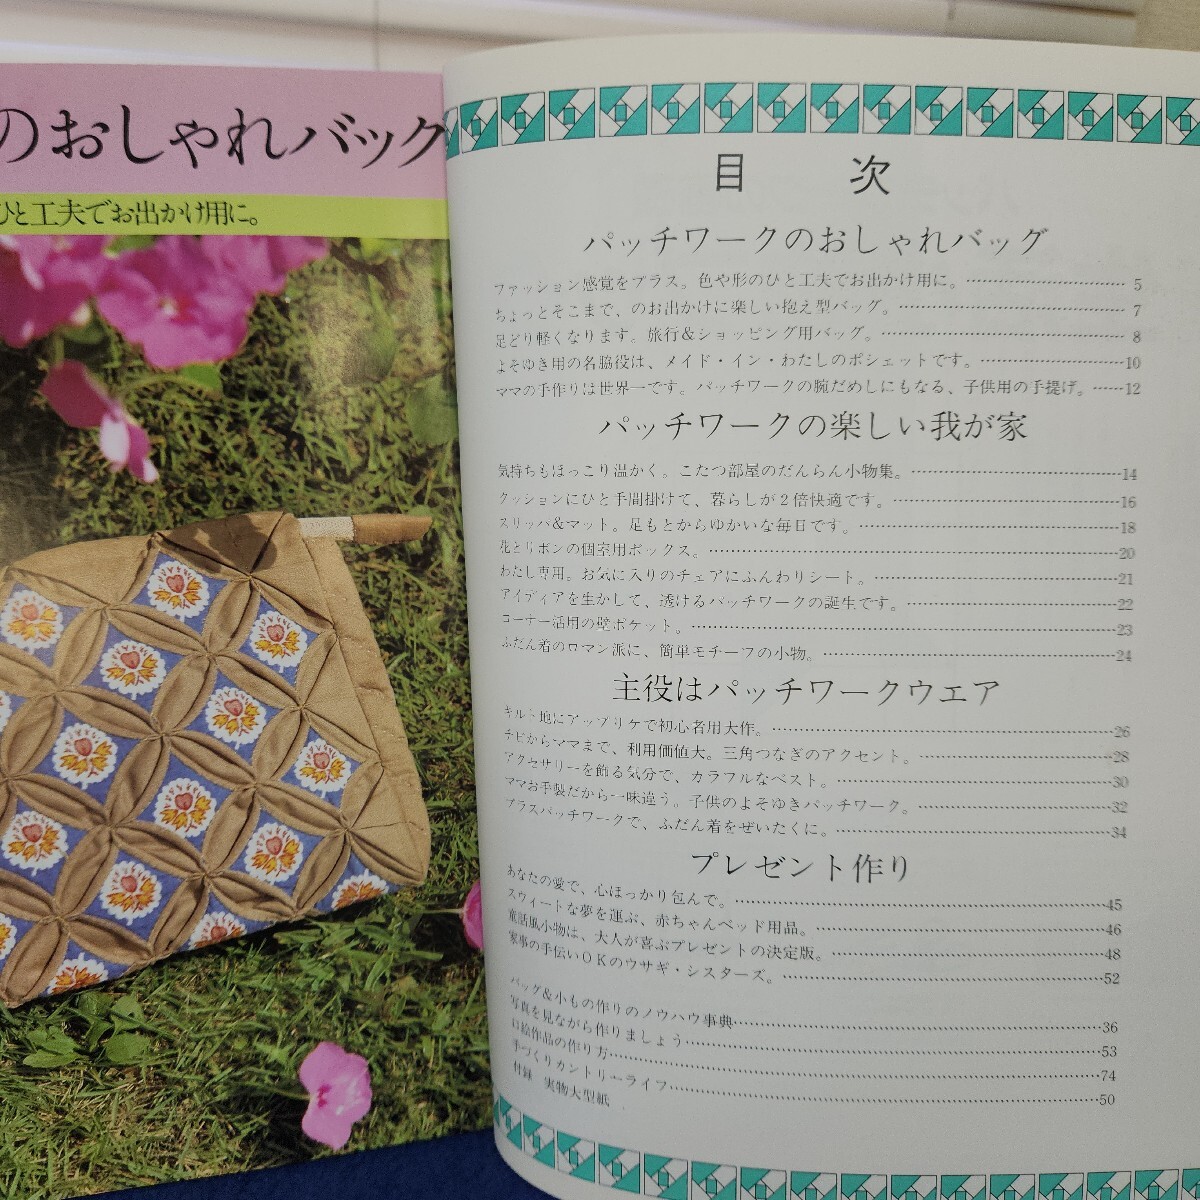 のおしゃれバック
ひと工夫でお出かけ用に。
目次
パッチワークのおしゃれバッグ
ファッション感覚をプラス。色や形のひと工夫でお出かけ用に。 5
ちょっとそこまで、のお出かけに楽しい抱え型バッグ。 7
足どり軽くなります。旅行&ショッピング用バッグ。 8
よそゆき用の名脇役は、メイド・イン・わたしのポシェットです。 10
ママの手作りは世界一です。パッチワークの腕だめしにもなる、子供用の手提げ。 12
パッチワークの楽しい我が家
気持ちもほっこり温かく。こたつ部屋のだんらん小物集。 14
クッションにひと手間掛けて、暮らしが2倍快適です。 16
スリッパ&マット。足もとからゆかいな毎日です。 18
花とリボンの個室用ボックス。 20
わたし専用。お気に入りのチェアにふんわりシート。 21
アイディアを生かして、透けるパッチワークの誕生です。 22
コーナー活用の壁ポケット。 23
ふだん着のロマン派に、簡単モチーフの小物。 24
主役はパッチワークウエア
キルト地にアップリケで初心者用大作。 26
チビからママまで、利用価値大。三角つなぎのアクセント。 28
アクセサリーを飾る気分で、カラフルなベスト。 30
ママお手製だから一味違う。子供のよそゆきパッチワーク。 32
プラスパッチワークで、ふだん着をぜいたくに。 34
プレゼント作り
あなたの愛で、心ほっかり包んで。 45
スウィートな夢を運ぶ、赤ちゃんベッド用品。 46
童話風小物は、大人が喜ぶプレゼントの決定版。 48
家事の手伝いOKのウサギ・シスターズ。 52
バッグ&小もの作りのノウハウ事典 36
写真を見ながら作りましょう 53
口絵作品の作り方 74
手づくりカントリーライフ 50
付録 実物大型紙